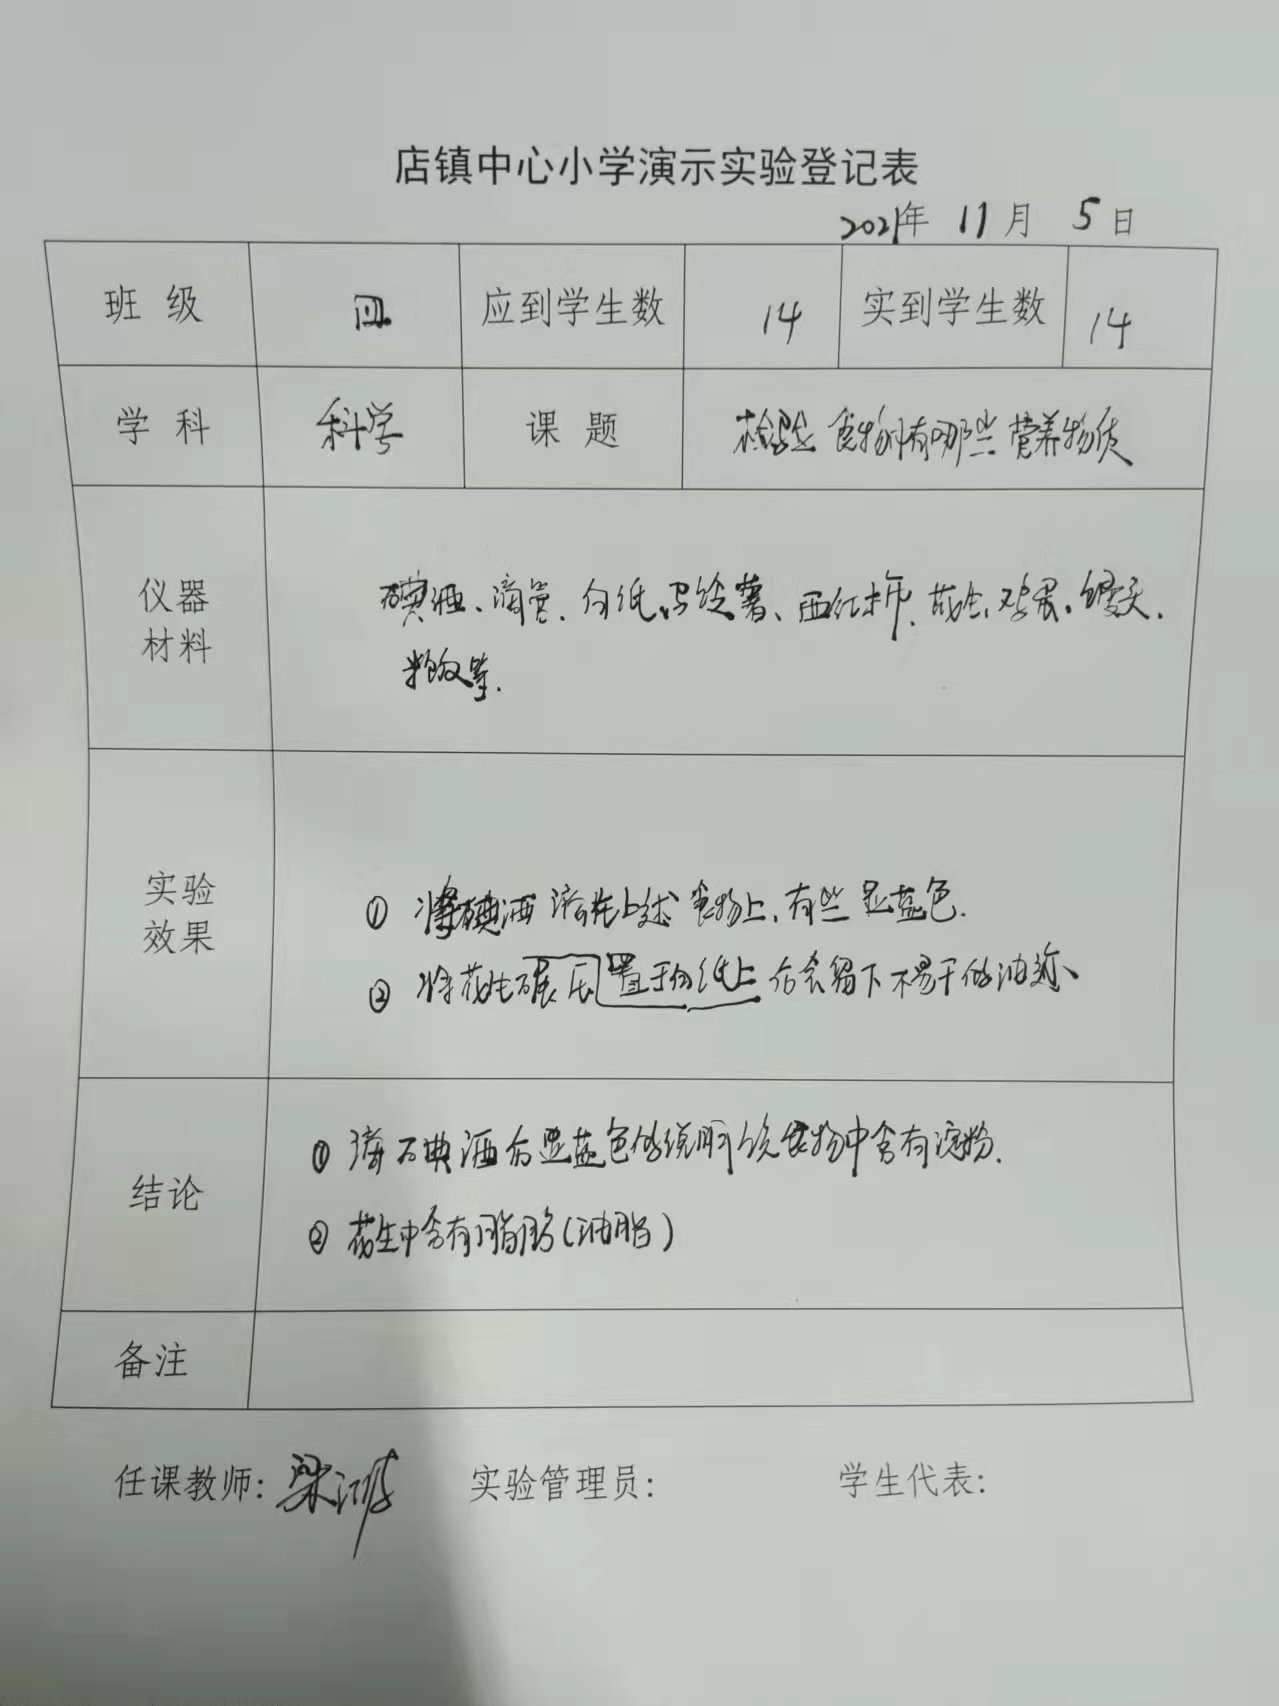 店镇中心小学演示实验登记表
2021年 11月 5日
班 级 四 应到学生数 14 实到学生数 14
学 科 科学 课 题 检验食物有哪些营养物质
仪器
材料
碘酒、滴管、白纸、马铃薯、西红柿、花生、鸡蛋、馒头、
米饭等.
实验
效果
① 将碘酒滴在上述食物上,有些显蓝色.
② 将花生碾压置于白纸上后会留下不易干的油迹、
结论
① 滴碘酒后显蓝色的说明该食物中含有淀粉.
② 花生中含有脂肪(油脂)
备注
任课教师: 梁 实验管理员: 学生代表: